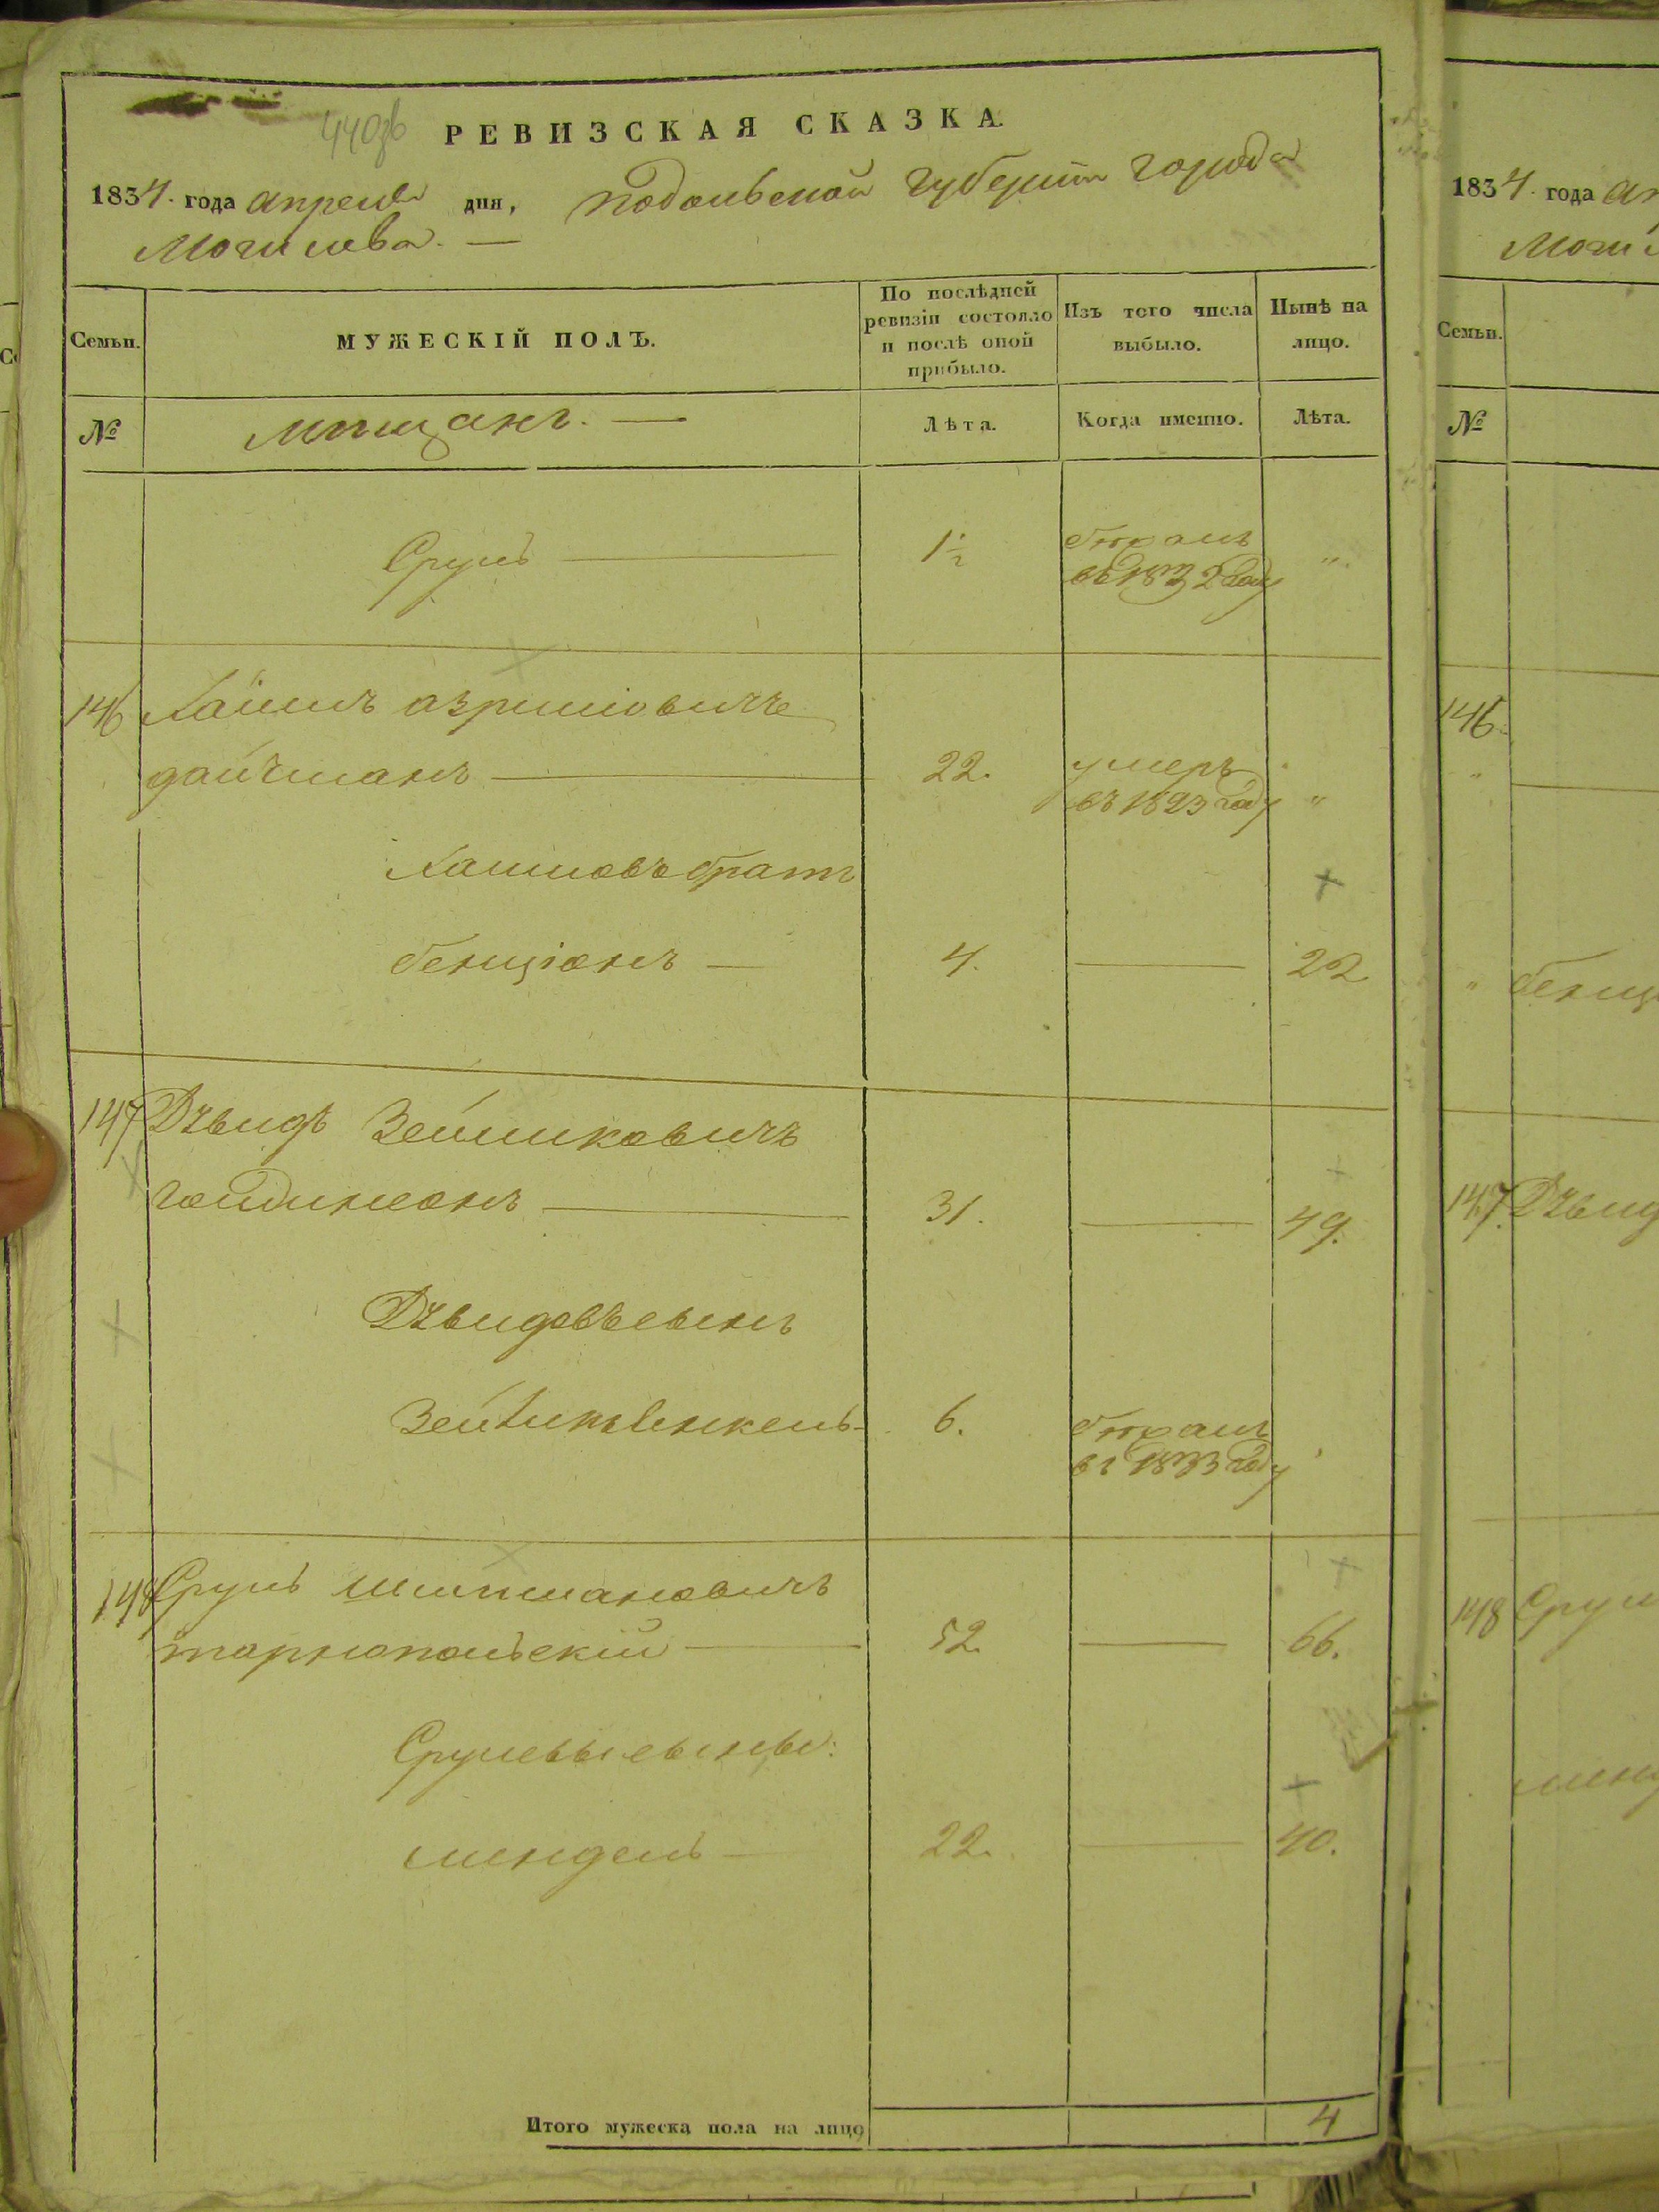 440об
РЕВИЗСКАЯ СКАЗКА.
1834. года апреля дня, подольской губернии города
Могилева. —
Семьи.
МУЖЕСКІЙ ПОЛЪ.
По послѣдней
ревизіи состояло
и послѣ оной
прибыло.
Изъ того числа
выбыло.
Нынѣ на
лицо.
№
мѣщанъ. —
Лѣта.
Когда именно.
Лѣта.
Сруль 1½ бѣжалъ
въ 1832 году "
146 Хаимъ азрилiовичъ
дайчманъ 22. умеръ
въ 1823 году "
Хаимовъ братъ
бенціонъ — 4. — 22
147 Дувидъ Зейликовичъ
31. — 49.
Дувидовъ сынъ
6. бѣжалъ
въ 1833 году
148 Сруль
тарнопольскій 52. — 66.
Срулевы сыны:
мендель — 22. — 40.
Итого мужеска пола на лицо 4
1834. года ап
Моги
Семьи.
№
146.
"
" бенци
147. Дувид
148 Срул
менд